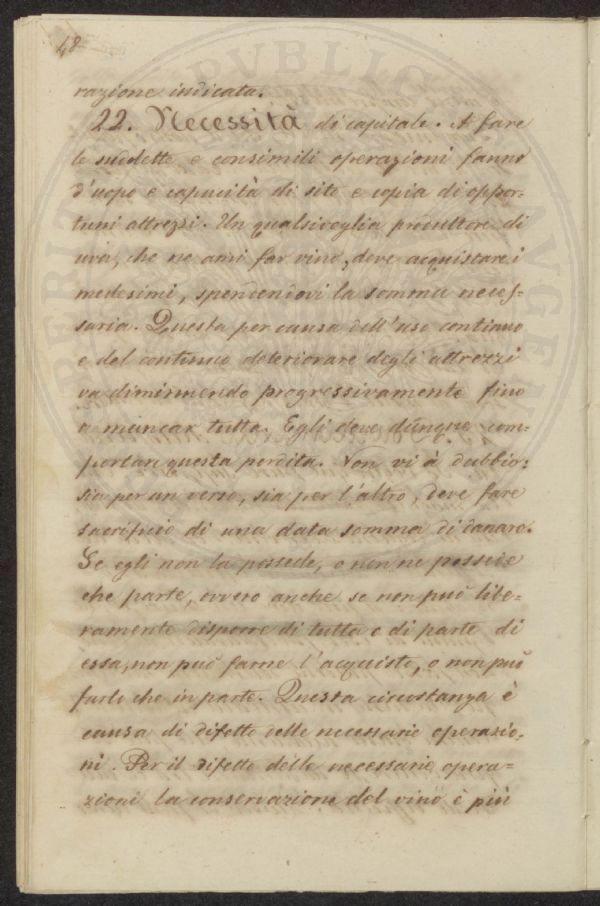 48
razione indicata.
22. Necessità di capitale. A fare
le suddette e consimili operazioni fanno
d'uopo e capacità di sito e copia di oppor-
tuni attrezzi. Un qualsivoglia produttore di
uva, che ne ami far vino, deve acquistare i
medesimi, spendendovi la somma neces-
saria. Questa per causa dell'uso continuo
e del continuo deteriorare degli attrezzi
va diminuendo progressivamente fino
a mancar tutta. Egli deve dunque com-
portare questa perdita. Non vi à dubbio:
sia per un verso, sia per l'altro, deve fare
sacrificio di una data somma di danaro.
Se egli non la possede, o non ne possede
che parte, ovvero anche se non può libe-
ramente disporre di tutta o di parte di
essa, non può farne l'acquisto, o non può
farlo che in parte. Questa circostanza è
causa di difetto delle necessarie operazio-
ni. Per il difetto delle necessarie opera=
zioni la conservazione del vino è più